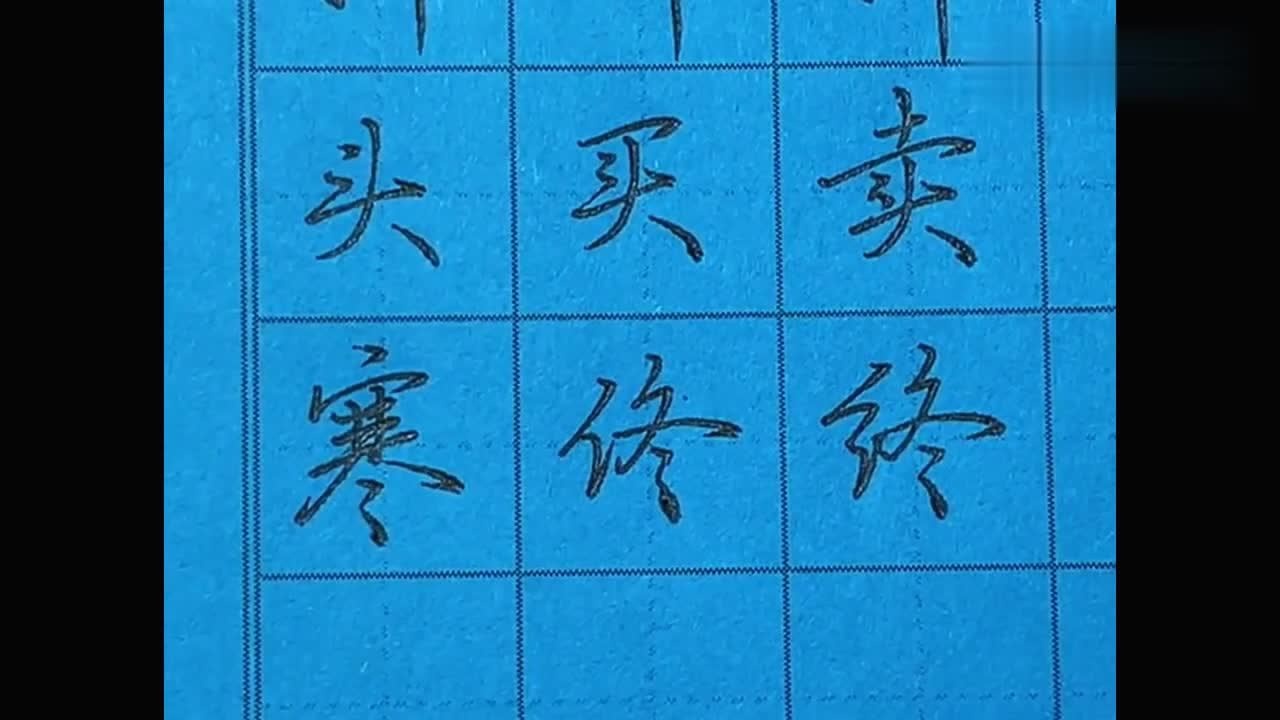 头买卖
寒佟终